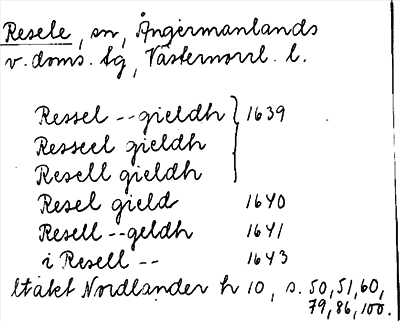 Resele, sn, Ångermanlands
v. doms. tg, Västernorrl. l.
Ressel -- gieldh } 1639
Resseel gieldh
Resell gieldh
Resel gield 1640
Resell -- geldh 1641
i Resell -- 1643
ltakt Nordlander h 10, s. 50, 51, 60,
79, 86, 100.